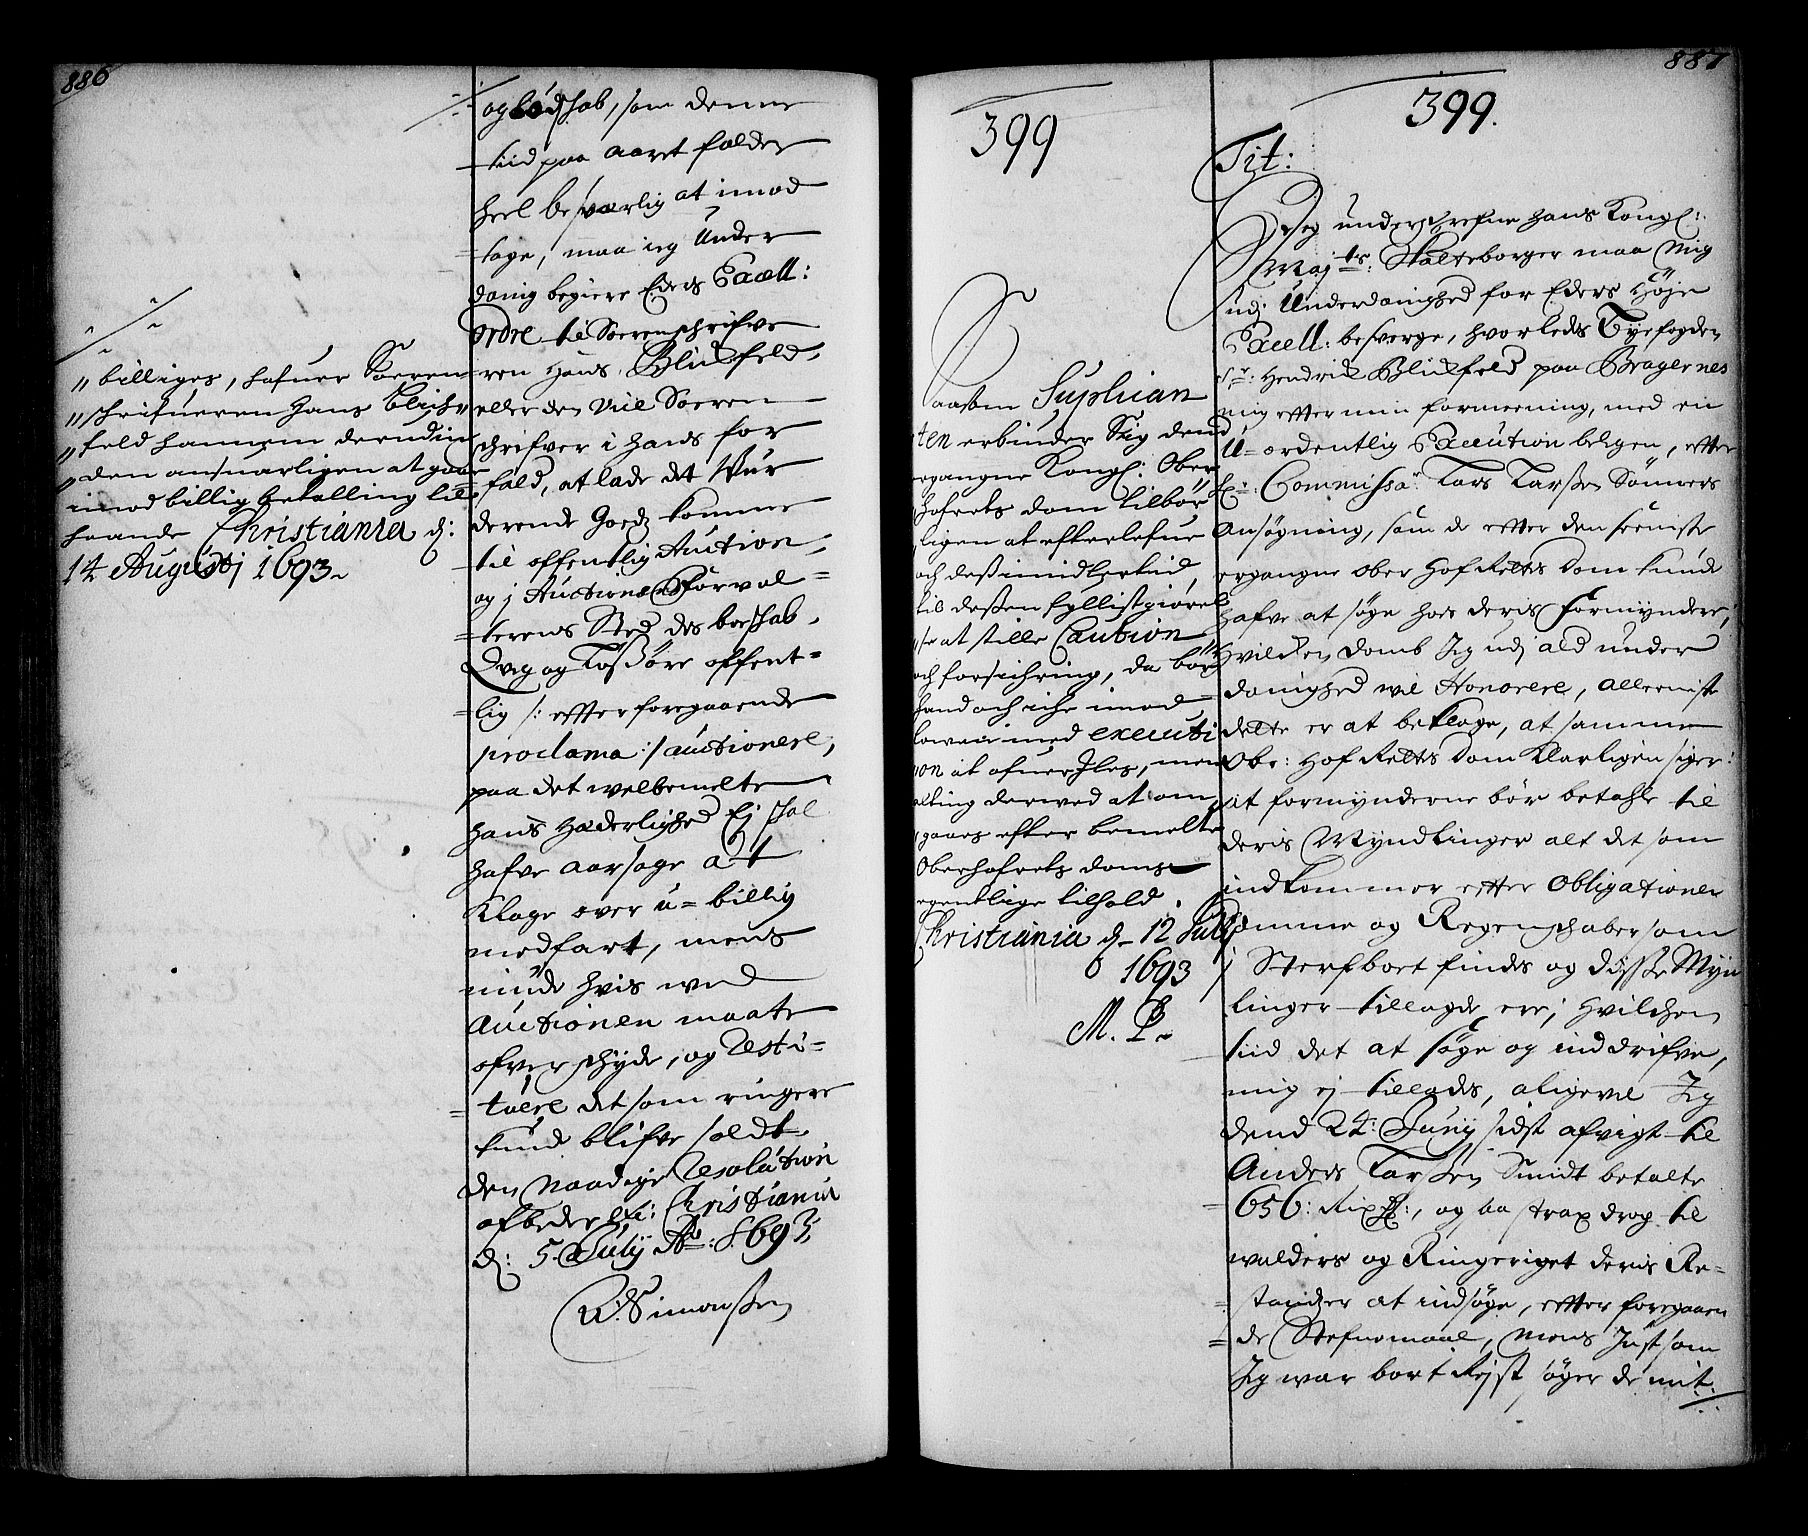 886
billiges, hafuer Soeren
schrifueren Hans Blich
feld hannem derudin
den ansuarligen at gaae
imod billig betalling til
haande Christiania d:
14 Augustj 1693.
og Lødschab, som denne
tiid paa aaret falder
heel besværlig at imod
tage, maa ieg under
danig begiere Eders Excell:
Ordre til Sorenschrifve
ren Hans Blickfeld,
eller den Viice Soren
schrifver i hans for
fald, at lade det Vur
derende Godz komme
til offentlig Auction,
og j Auctions Forval=
terens Sted des boeschab,
Qvæg og Løssøre offent=
lig /: efter foregaaende
proclama :/ auctionere,
paa det welbemelte
hans Hæderlighed Ej schal
hafve aarsage at
Klage over u=billig
medfart, mens
minde hvis ved
Auctionen maate
ofverschyde, og resti=
tuere det som ringere
kund blifve soldt.
Den Naadige Resolution
afbeder etc: Christiania
d: 5. July Ao: 1693.
R: Simonssen
887
399
Saasom Suplican
ten erbinder Sig dend
ergangne Kongl: Ober
hofrets dom tilbør
ligen at efterlefue
och dess imidlertid,
til dessen fyllistgiørel
se at stille Caution
och forsichring, da bør
hand och iche imod
lowen med executi
on at ofueriles, men
alting derved at om
gaaes efter bemelte
Oberhofrets doms
egentlige tilhold.
Christiania d. 12 July
1693
M. P.
399.
Tit:
Jeg underschrefne hans Kongl:
Mayts: Skatteborger maa mig
udj Underdanighed for Eders Høje
Excell: besverge, hvorledes Byefogden
Sr: Hendrik Blickfeld paa Bragernes
mig efter min formeening, med en
U=ordentlig Execution belegen, efter
Sl: Commissar Lars Larsens Sønners
Ansøgning, som de efter den seeniste
ergangne Ober Hof Retts Dom kunde
hafve at søge hos deris Formyndere,
hvilchen Domb Jeg udj ald under
danighed vil Honorere, allerniste
dette er at beklage, at samme
Obr: Hof Retts Dom klarligen siger
at formynderne bør betahle til
deris Myndlinger alt det som
indkommer efter Obligationer
Domme og Regenschaber som
j Sterfboet findes og disse Myn
linger tillagde ere; Hvilchen
tiid det at søge og inddrifve,
mig ej tillades, aligevel Jeg
dend 24: Juny sidst afvigt til
Anders Larsen Smidt betalte
656: Rixdr:, og saa strax drog til
walders og Ringeriget deris Re=
standzer at indsøge, efter foregaaen
de Stefnemaal, Mens Just som
Jeg war bort Rejst, søger de mit